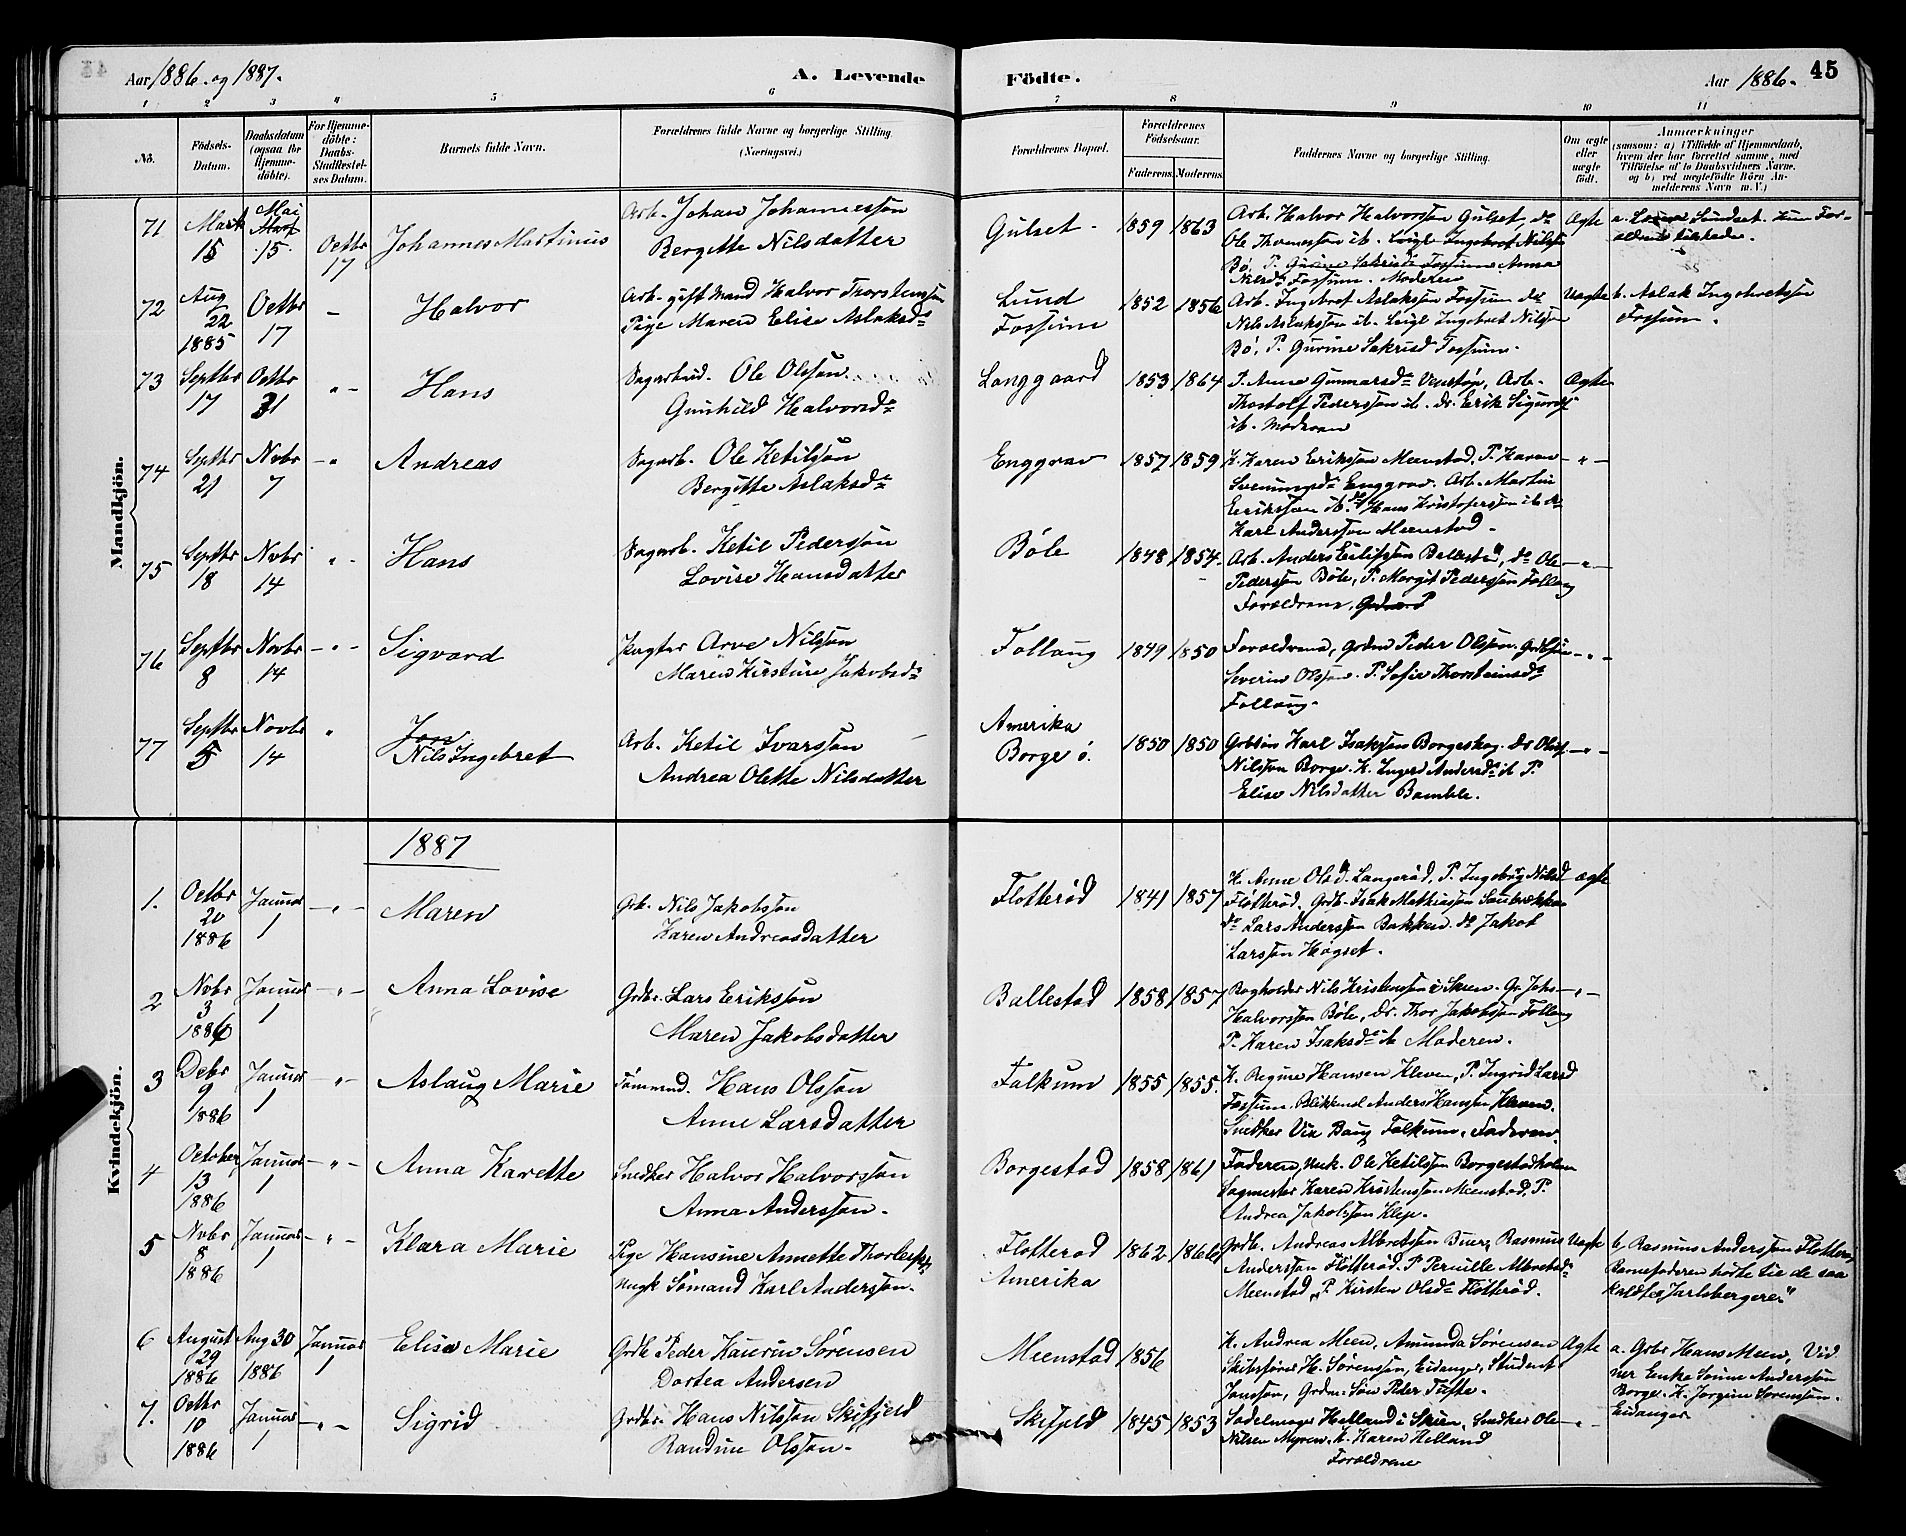 Aar 1886. og 1887.
A. Levende
Födte.
Aar 1886.
45
1 2 3 4 5 6 7 8 9 10 11
No.
Födsels-Datum.
Daabsdatum (ogsaa for Hjemme-döbte).
For Hjemme-döbte: Daabs-Stadfæstel-ses Datum.
Barnets fulde Navn.
Forældrenes fulde Navne og borgerlige Stilling. (Næringsvei.)
Forældrenes Bopæl.
Forældrenes Födselsaar.
Faderens. Moderens.
Faddernes Navne og borgerlige Stilling.
Om ægte eller uægte födt.
Anmærkninger
(saasom: a) i Tilfælde af Hjemmedaab,
hvem der har forrettet samme, med
Tilföielse af to Daabsvidners Navne.
og b) ved uægtefödte Börn An-
melderens Navn m. V.)
Mandkjön.
71 Marts 15 Mai 15. Octbr 17 Johannes Martinus
Arb. Johan Johannesson
Bergitte Nilsdatter
Gulset. 1859 1863
Arb. Halvor Halvorsson Gulset, do
Ole Thomesson ib. Leigl. Ingebret Nilsson
Bø, P. Gurine Sakrisdr Fossum Anna
Nilsdr Fossum. Moderen
Ægte
72 Aug 22 1885 Octbr 17 - Halvor
Arb. gift Mand Halvor Thorstensson
Pige Maren Elise Aslaksdr
Lund
Fossum
1852 1856
Arb. Ingebret Aslaksson Fossum do
Nils Aslaksson ib. Leigl. Ingebret Nilsson
Bø, P. Gurine Sakrisd Fossum.
Uægte
b. Aslak Ingebretsson
Fossum.
73 Septbr 17 Octbr 31 " - Hans
Sagarbeid. Ole Olsson
Gunhild Halvorsdr
Langgaard 1853 1864
P. Anne Gunnarsdr Venstøp, Arb.
Thostolf Pedersson ib. do. Erik Sigurdss
ib. Moderen
Ægte
74 Septbr 21 Novbr 7 - " Andreas
Sagarb. Ole Ketilsson
Bergitte Aslaksdr
Enggrav 1857 1859
K. Karen Eriksson Meenstad, P. Karen
Enggrav. Arb. Martin
Eriksson ib. do Hans Kristofersson ib do
Karl Andersson Meenstad.
- " -
75 Septbr 18 Novbr 14 " - Hans
Sagarb. Ketil Pedersson
Lovise Hansdatter
Bøle 1848 1854.
Arb. Anders Ballestd, do Ole
Pedersson Bøle, P. Margit Pedersson Follaug
Forældrene.
- " -
76 Septbr 8 Novbr 14 - " - Sigvard
Pagter Arve Nilsson
Maren Kirstine Jakobsdr
Follaug 1849 1850
Forældrene, Grdm Peder Olsson. Grdbsøn
Severin Olsson. P. Sofie Thorsteinsdr
Follaug.
- " -
77 Septbr 5 Novbr 14 " Jon
Nils Ingebret
Arb. Ketil Ivarsson
Andrea Olette Nilsdatter
Amerika
Borge ö.
1850 1850
Grbsøn Karl Isaksson Borgeskog. do Oluf
Nilsson Borge. K. Inger Andersdr ib P.
Elise Nilsdatter Bamble.
- " -
Kvindekjön.
1887
1. Octbr 20 1886 Januar 1 - " - Maren
Grb. Nils Jakobsson
Karen Andreasdatter
Flotterød 1841 1857
K. Anne Olsd. Langerød, P. Ingeborg Nilsd
Fløtterød. Grdb. Isak Mathiasson
do Lars Andersson Bakken. do Jakob
Larsson Høgset.
Ægte
2 Novbr 3 1886 Januar 1 - " - Anna Lovise
Grdbr. Lars Eriksson
Maren Jakobsdatter
Ballestad 1858 1857
Bogholder Nils Kristensson i Skien. Gr. Johs
Halvorsson Bøle, do. Thor Jakobsson Follaug
P. Karen Isaksdr ib Moderen.
- " -
3 Debr 9 1886 Januar 1 - " - Aslaug Marie
Tømmermd. Hans Olsson
Anne Larsdatter
Falkum 1855 1855.
K. Regine Hansen Kleven, P. Ingrid Larsd
Fossum. Blikkensl Anders Hansen Kleven.
Snedker Bang Falkum, Faderen.
4 October 13 1886 Januar 1 - " - Anna Karette
Snedker Halvor Halvorsson
Anna Andersson.
Borgestad 1858 1861
Faderen, Unk. Ole Ketilsson Borgestadholm
Sagmester Karen Kristensson Meenstad, P.
Andrea Jakobsson Kleje.
5 Novbr 8 1886 Januar 1 - " - Klara Marie
Pige Hansine Annette
Ungk Sømand Karl Andersson.
Flotterød
Amerika
1862 1866
Grdb. Andreas Albretsson Buer, Rasmus
Andersson Fløtterød. P Pernille Albretsdr
Meenstad, P. Kirsten Olsdr Flotterød.
Uægte
b, Rasmus Andersson Flotterød
Barnefaderen hørte til de saa
kaldte "Jarlsbergere"
6 August 29 1886 Aug 30 1886 Januar 1 Elise Marie
Grdb Peder Kaurin Sørensen
Dortea Andersen
Meenstad 1856
K. Andrea Meen, Amunda Sørensen
Skibsfører H. Sørensson, Eidanger, Student
Jonsson, Grdm. Søn Peder Tufte.
Ægte
a. Grbr Hans Meen, Vid
ner Enke Andersson
Borge. K. Jørgine Sørensson.
Eidanger
7. Octbr 10 1886 Januar 1 - " - Sigrid
Grdbr. Hans Nilsson Skifjeld
Randine Olsson.
Skifjeld 1845 1853
Sadelmager Helland i Skien, Snedker Ole
Nilsen Myren. K. Karen Helland
Forældrene
- " -